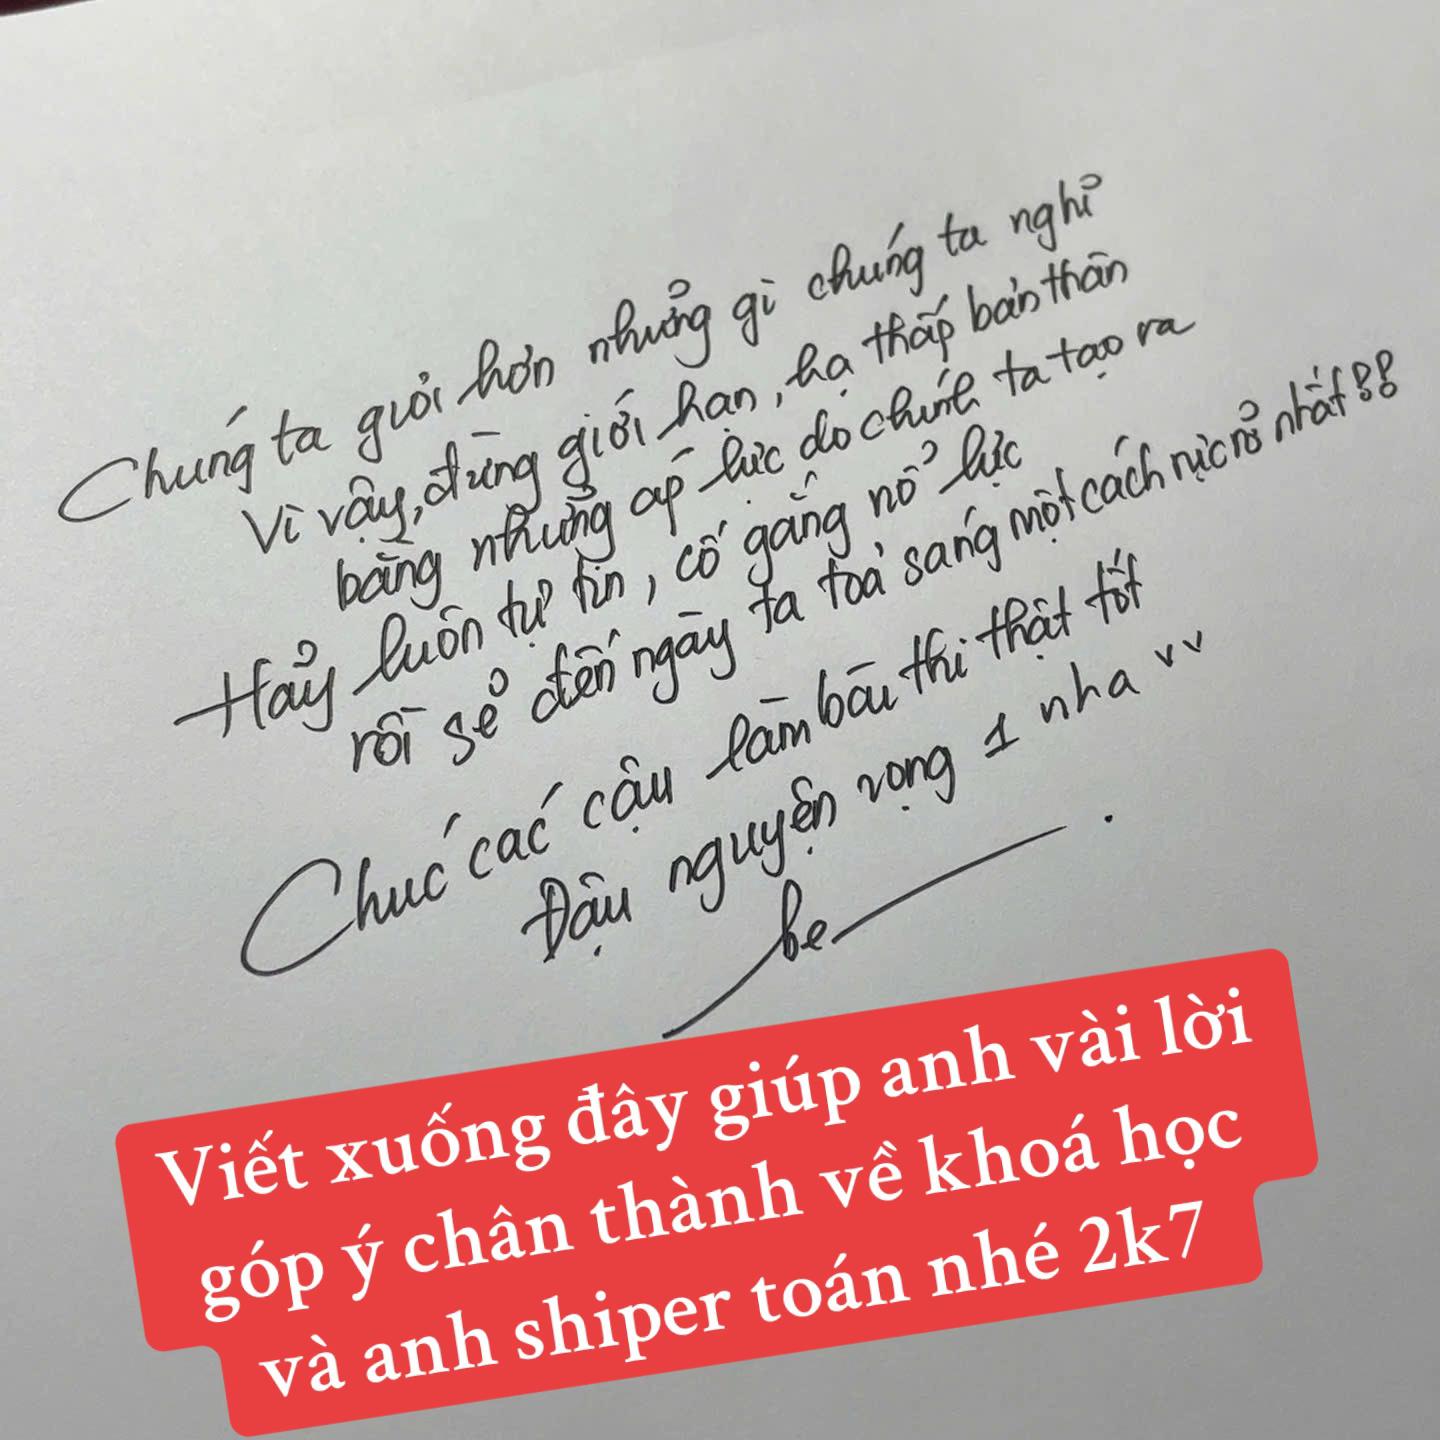 Chúng ta giỏi hơn nhửng gì chúng ta nghỉ
Vì vậy, đừng giới hạn, hạ thấp bản thân
bằng nhửng áp lực do chính ta tạo ra
Hảy luôn tự tin, cố gắng nổ lực
rồi sẻ đến ngày ta toả sáng một cách rực rở nhất
Chúc các cậu làm bài thi thật tốt
Đậu nguyện vọng 1 nha
be
Viết xuống đây giúp anh vài lời
góp ý chân thành về khoá học
và anh shiper toán nhé 2k7